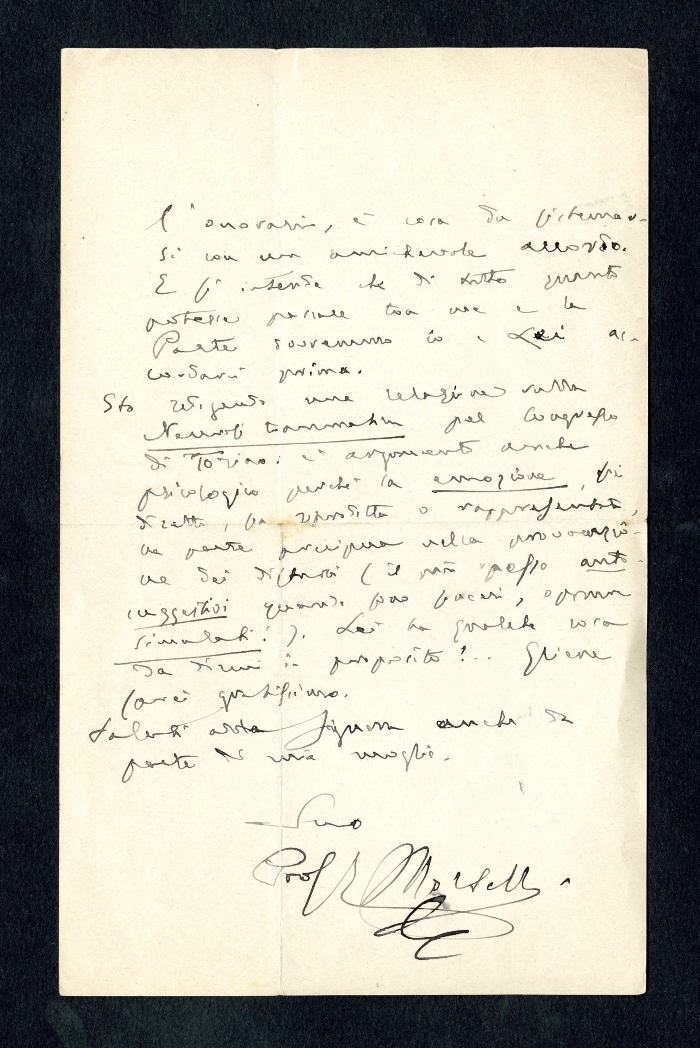 l'onorario, è cosa da sistemar-
si con un amichevole accordo.
E si intende che di tutto quanto
potesse passare tra me e la
Parte dovremmo io e Lei ac-
cordarci prima.
Sto redigendo una relazione sulla
Neurosi traumatica pel Congresso
di Torino: è argomento anche
psicologico perchè la emozione, si
diretta, sia riprodotta o rappresentata,
ha parte precipua nella provocazio-
ne dei disturbi (il più spesso auto-
suggestivi quando sono sinceri, oppure
simulati!). Lei ha qualche cosa
da dirmi in proposito?.. Gliene
sarei gratissimo.
Saluti alla Signora anche da
parte di mia moglie.
Suo
Prof E Morselli